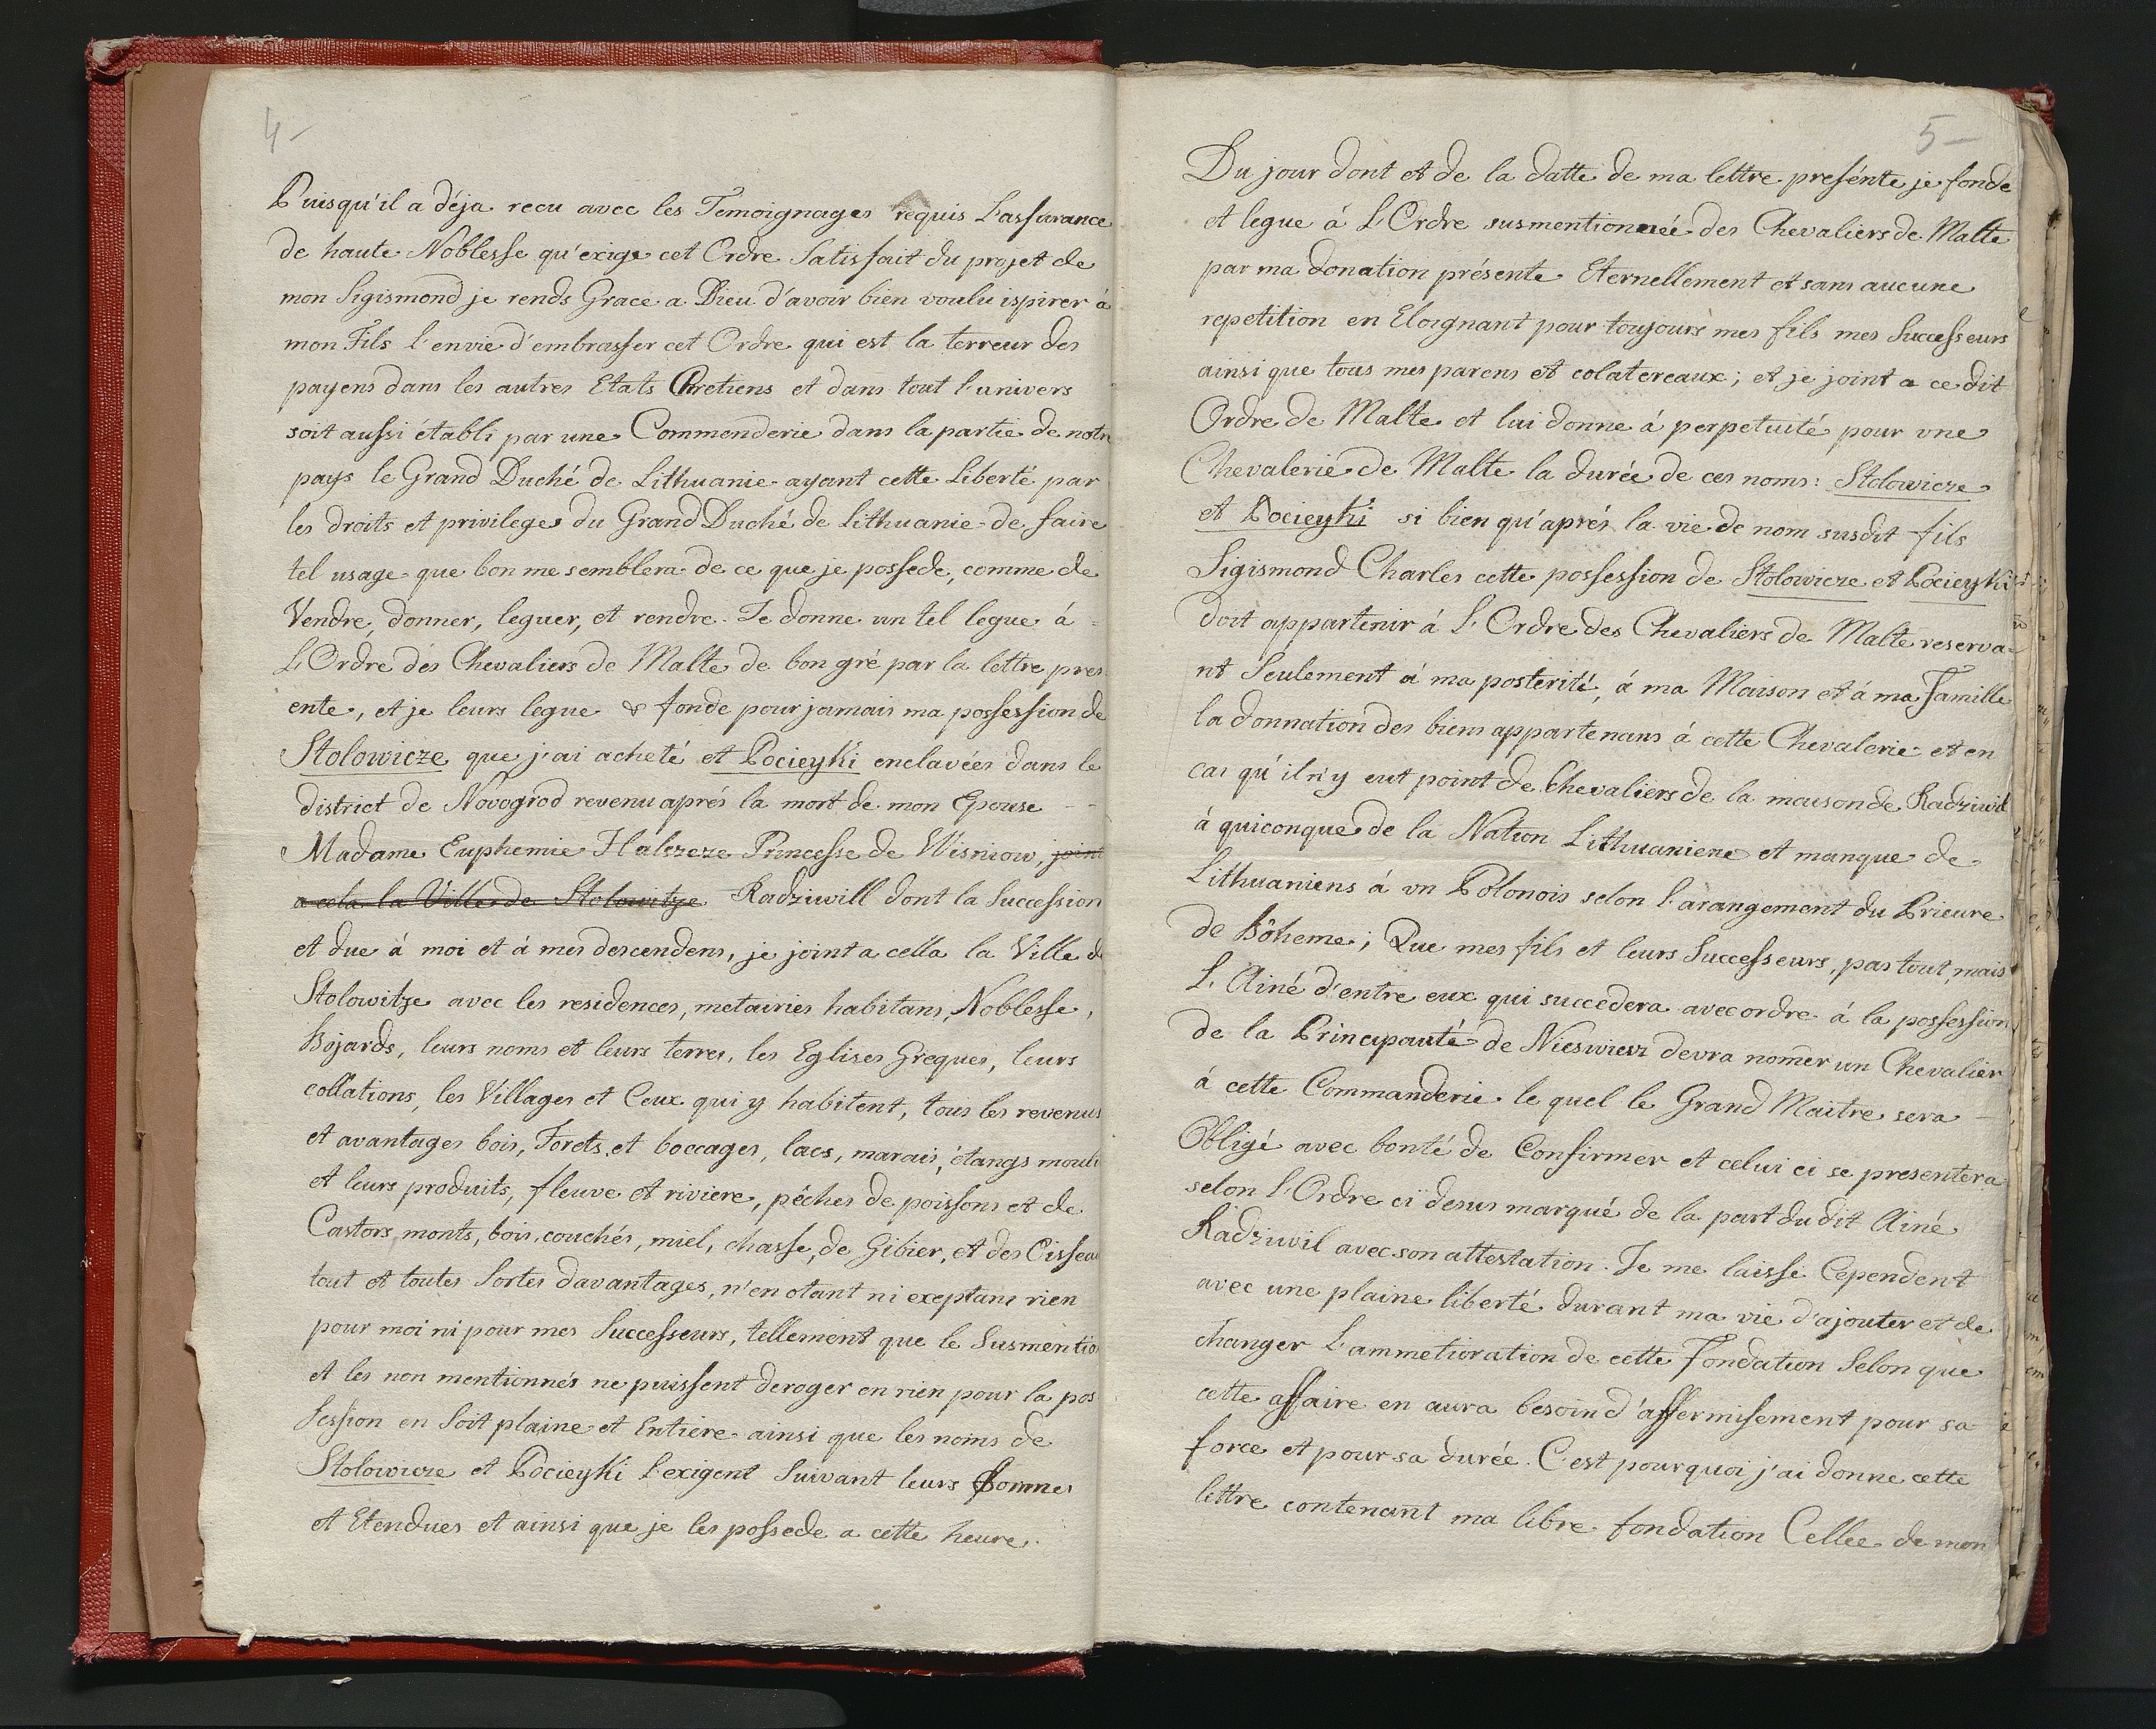 4-
Puisqu'il a déja recu avec les Temoignages requis L'assurance
de haute Noblesse qu'exige cet Ordre Satisfait du projet de
mon Sigismond je rends Grace a Dieu d'avoir bien voulu ispirer à
mon Fils l'envie d'embrasser cet Ordre qui est la terreur des
payens dans les autres Etats Chretiens et dans tout l'univers
soit aussi établi par une Commenderie dans la partie de notre
pays le Grand Duché de Lithuanie ayant cette Liberté par
les droits et privileges du Grand Duché de Lithuanie de faire
tel usage que bon me semblera de ce que je possede, comme de
Vendre, donner, leguer, et rendre. Je donne un tel legue à
L'Ordre des Chevaliers de Malte de bon gré par la lettre pres
ente, et je leurs legue & fonde pour jamais ma possession de
Stolowicze que j'ai acheté et Pocieyki enclavées dans le
district de Novogrod revenu aprés la mort de mon Epouse --
Madame Euphemie Halszeze Princesse de Wisniow, joint
a cela la Ville de Stolowitze Radziwill dont la Succession
et due à moi et à mes descendens, je joint a cella la Ville de
Stolowitze avec les residences, metairies habitans, Noblesse,
Bojards, leurs noms et leurs terres, les Eglises Greques, leurs
collations, les Villages et Ceux qui y habitent, tous les revenus
et avantages bois, Forets, et boccages, lacs, marais, étangs mouli
et leurs produits, fleuve et riviere, pêches de poissons et de
Castors, monts, bois, couchés, miel, chasse, de Gibier, et des Oiseau
tout et toutes Sortes davantages, n'en otant ni exeptans rien
pour moi ni pour mes Successeurs, tellement que le Susmentio
et les non mentionnés ne puissent deroger en rien pour la pos
session en Soit plaine et Entiere ainsi que les noms de
Stolowicze et Pocieyki l'exigent Suivant leurs Bornes
et Etendues et ainsi que je les possede a cette heure.
5-
Du jour dont et de la datte de ma lettre presénte je fonde
et legue à L'Ordre susmentionneé des Chevaliers de Malte
par ma donation présente Eternellement et sans aucune
repetition en Eloignant pour toujours mes fils mes Successeurs
ainsi que tous mes parens et colatereaux; et je joint a ce dit
Ordre de Malte et lui donne à perpetuité pour une
Chevalerie de Malte la durée de ces noms: Stolowicze
et Pocieyki si bien qu'aprés la vie de nom susdit fils
Sigismond Charles cette possession de Stolowicze et Pocieyki
doit appartenir à L'Ordre des Chevaliers de Malte reserva-
nt Seulement à ma posterité, á ma Maison et á ma Famille
la donnation des biens appartenans á cette Chevalerie et en
cas qu'il n'y eut point de Chevaliers de la maison de Radziwil
à quiconque de la Nation Lithuaniene et manque de
Lithuaniens á un Polonois selon l'arangement du Prieure
de Bôheme; Que mes fils et leurs Successeurs, pas tout, mais
L'Ainé d'entre eux qui succedera avec ordre à la possession
de la Principauté de Nieswiesz devra nomer un Chevalier
á cette Commanderie le quel le Grand Maitre sera -
Obligé avec bonté de Confirmer et celui ci se presentera
selon L'Ordre ci desus marqué de la part du dit Ainé
Radziwil avec son attestation. Je me laisse Cependent
avec une plaine liberté durant ma vie d'ajouter et de
changer L'ammetioration de cette Fondation Selon que
cette affaire en aura besoin d'affermisement pour sa
force et pour sa durée. C'est pourquoi j'ai donne cette
lettre contenant ma libre fondation Cellee de mon